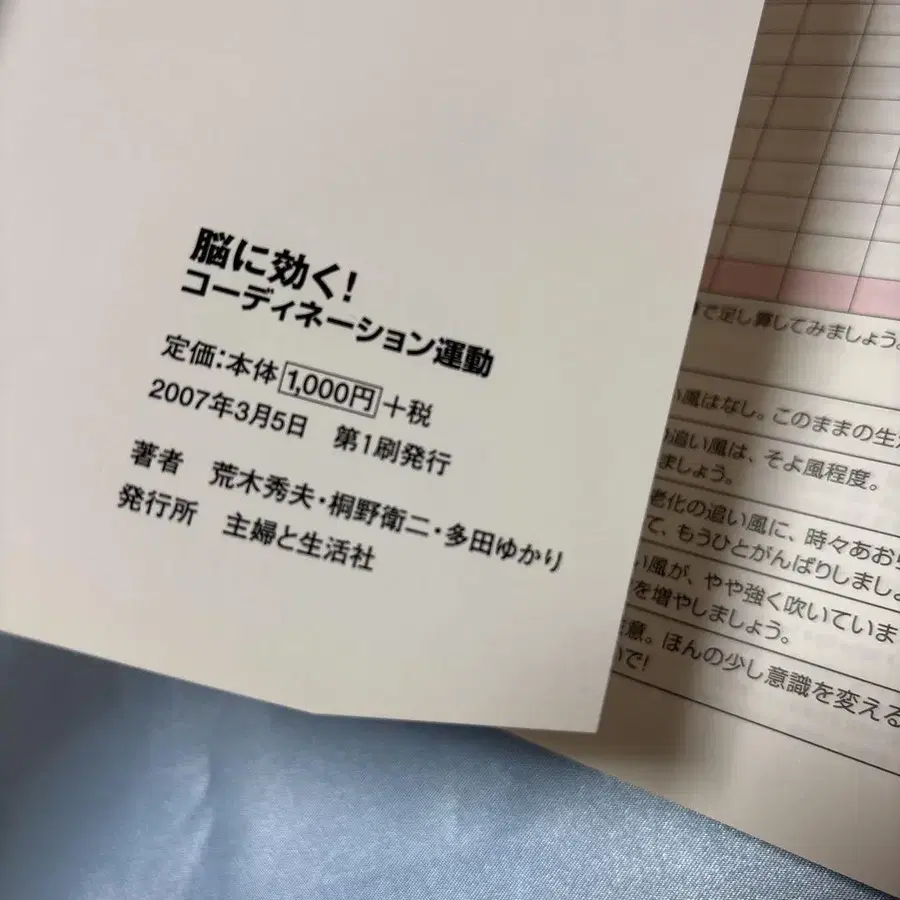 脳に効く!
コーディネーション運動
定価:本体1,000円+税
2007年3月5日 第1刷発行
著者 荒木秀夫・桐野衛二・多田ゆかり
発行所 主婦と生活社
で足し算してみましょう。
い風はなし。このままの生
の追い風は、そよ風程度。
ましょう。
老化の追い風に、時々あお
て、もうひとがんばりしましょ
い風が、やや強く吹いていま
を増やしましょう。
意。ほんの少し意識を変える
で!